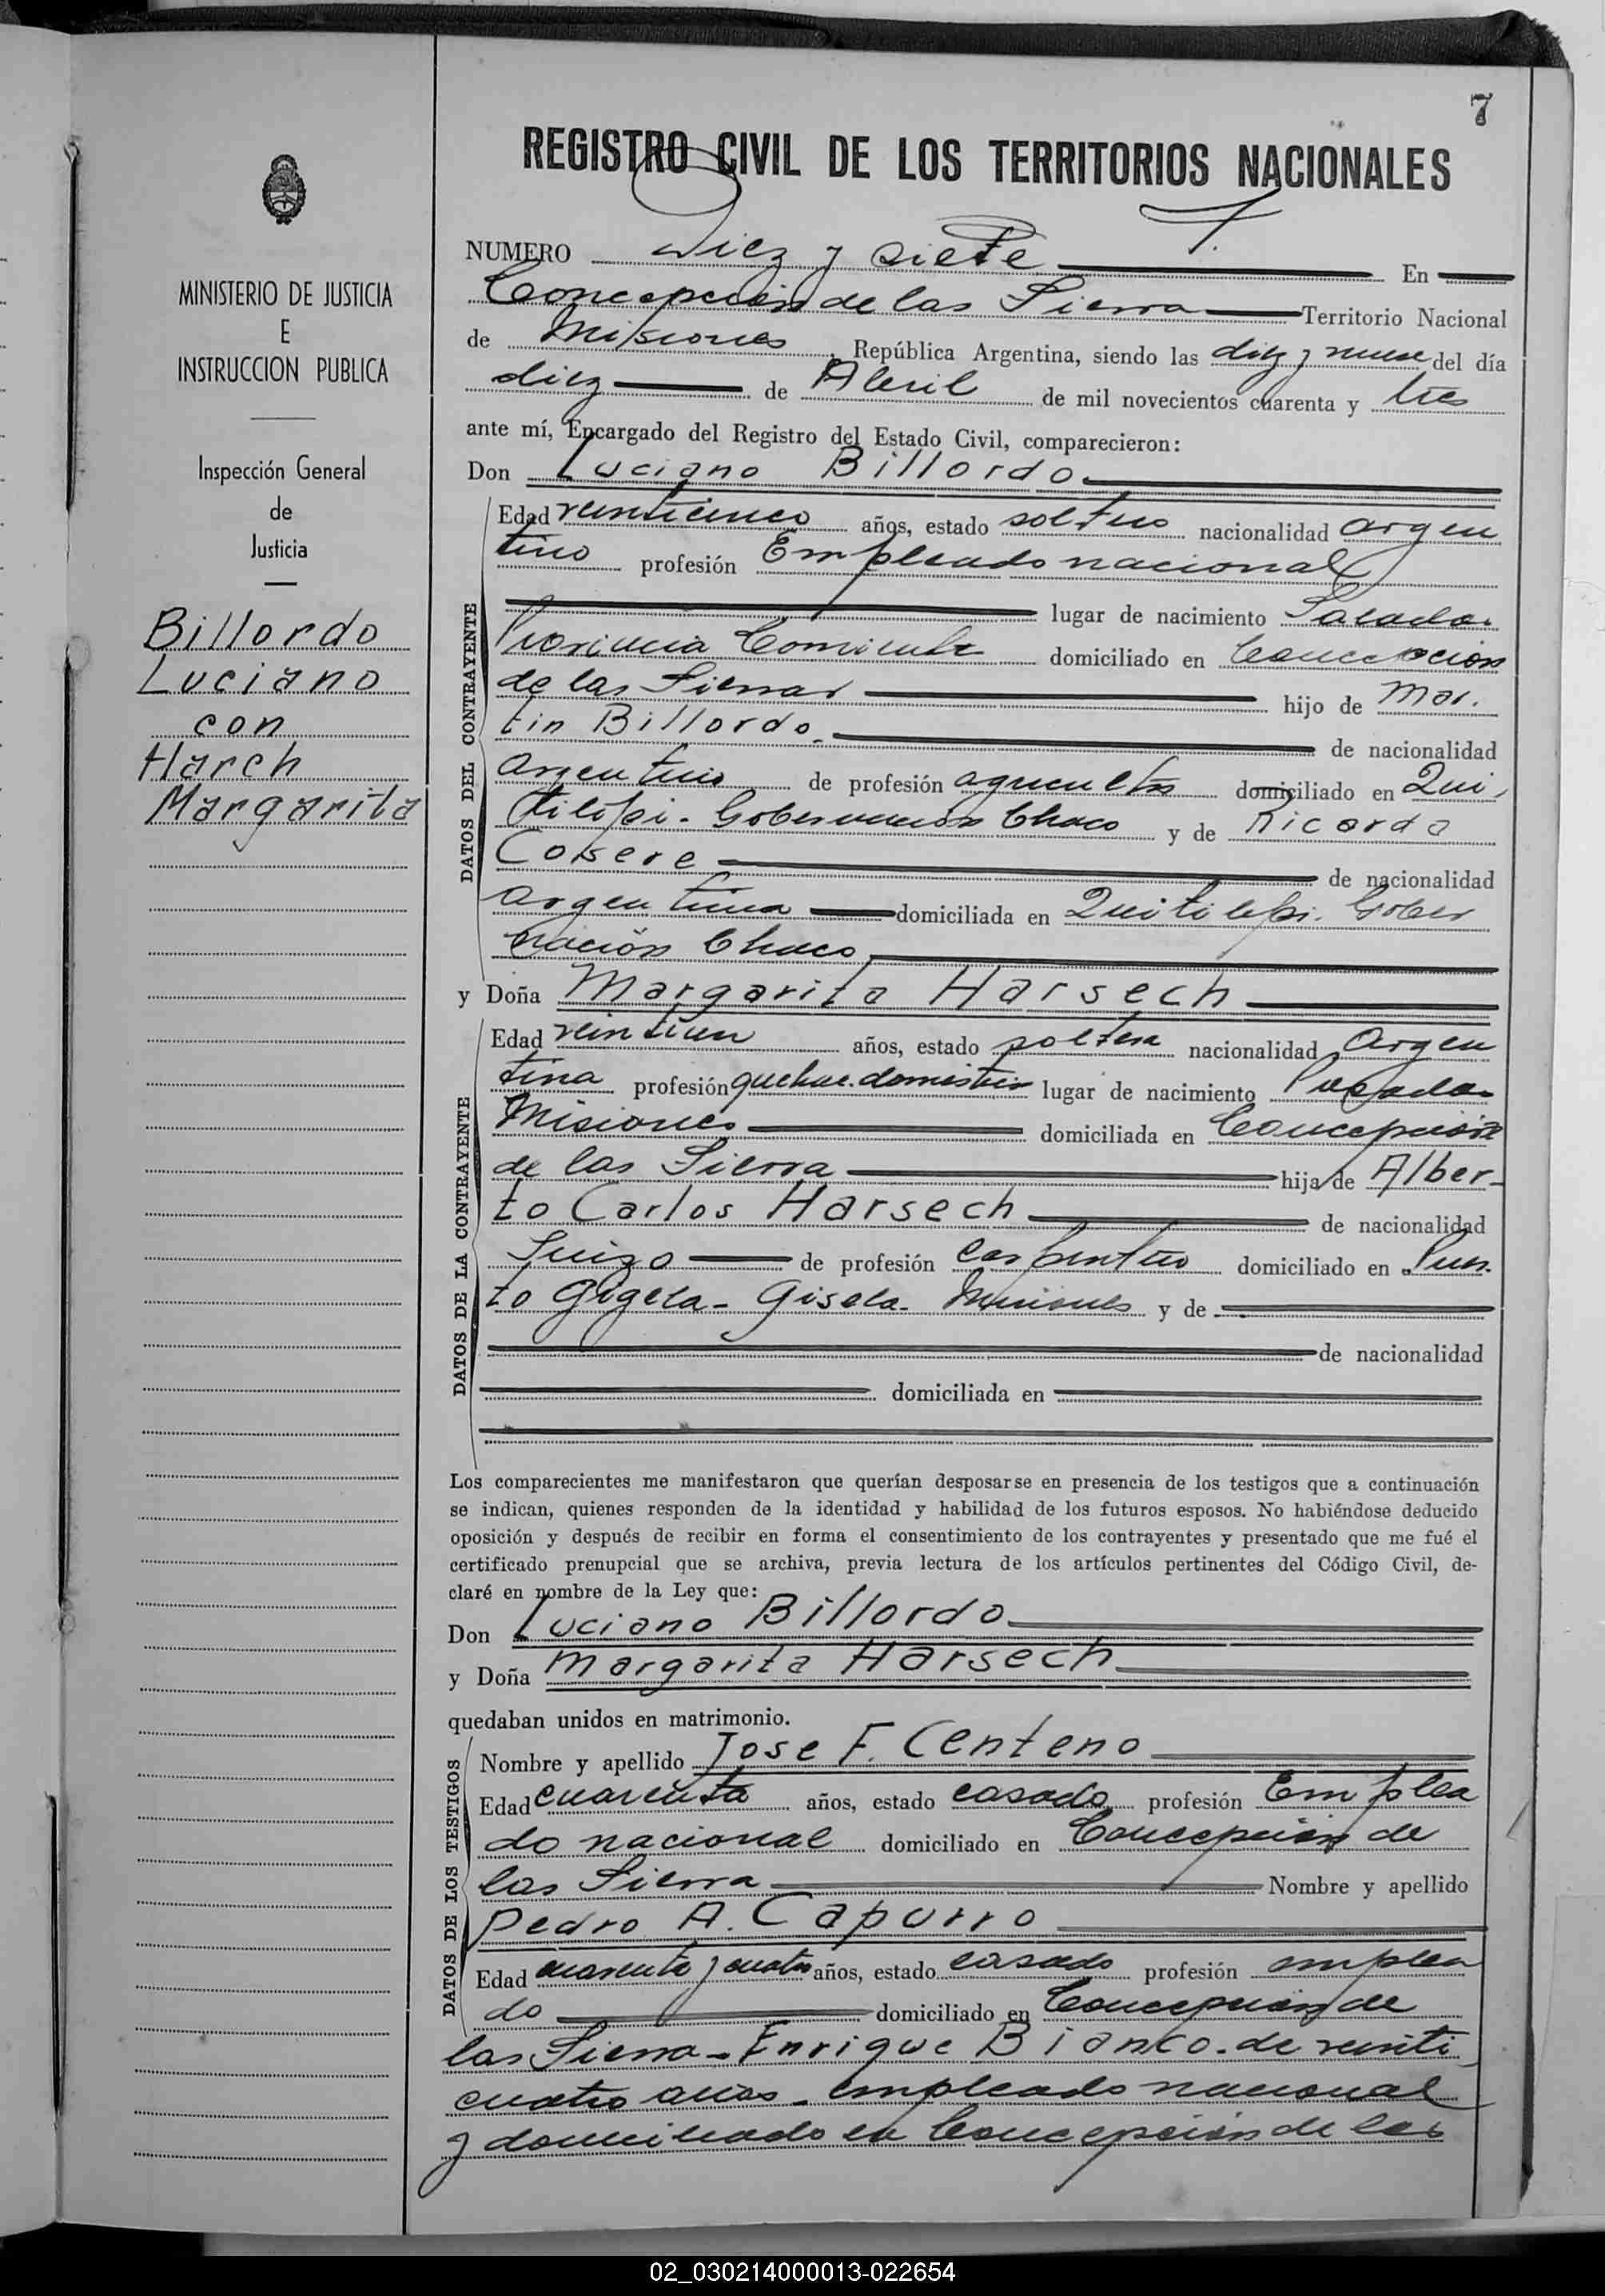 7
REGISTRO CIVIL DE LOS TERRITORIOS NACIONALES
MINISTERIO DE JUSTICIA
E
INSTRUCCION PUBLICA
Inspección General
de
Justicia
Billordo
Luciano
con
Harch
Margarita
NUMERO Diez y siete En
Concepción de las Sierra Territorio Nacional
de Misiones República Argentina, siendo las diez y nueve del día
diez de Abril de mil novecientos cuarenta y tres
ante mí, Encargado del Registro del Estado Civil, comparecieron:
Don Luciano Billordo
DATOS DEL CONTRAYENTE
Edad veinticinco años, estado soltero nacionalidad argen
tino profesión Empleado nacional
lugar de nacimiento Saladas
Provincia Corrientes domiciliado en Concepción
de las Sierras hijo de Mar.
tin Billordo. de nacionalidad
argentino de profesión agricultor domiciliado en Qui
tilipi. Gobernación Chaco y de Ricarda
de nacionalidad
argentina domiciliada en Quitilipi. Gober
nación Chaco
y Doña Margarita Harsech
DATOS DE LA CONTRAYENTE
Edad veintiun años, estado soltera nacionalidad Argen
tina profesión quehac. domesticos lugar de nacimiento Posadas
Misiones domiciliada en Concepción
de las Sierra hija de Alber-
to Carlos Harsech de nacionalidad
Suizo de profesión Carpintero domiciliado en Puer.
to Gisela. Misiones y de
de nacionalidad
domiciliada en
Los comparecientes me manifestaron que querían desposarse en presencia de los testigos que a continuación
se indican, quienes responden de la identidad y habilidad de los futuros esposos. No habiéndose deducido
oposición y después de recibir en forma el consentimiento de los contrayentes y presentado que me fué el
certificado prenupcial que se archiva, previa lectura de los artículos pertinentes del Código Civil, de-
claré en nombre de la Ley que:
Don Luciano Billordo
y Doña Margarita Harsech
quedaban unidos en matrimonio.
DATOS DE LOS TESTIGOS
Nombre y apellido Jose F. Centeno
Edad cuarenta años, estado casado profesión Emplea
do nacional domiciliado en Concepción de
las Sierra Nombre y apellido
Pedro A. Capurro
Edad cuarenta y cuatro años, estado casado profesión emplea
do domiciliado en Concepción de
las Sierra - Enrique Bianco. de veinti
cuatro años - empleado nacional
y domiciliado en Concepción de las
02_030214000013-022654